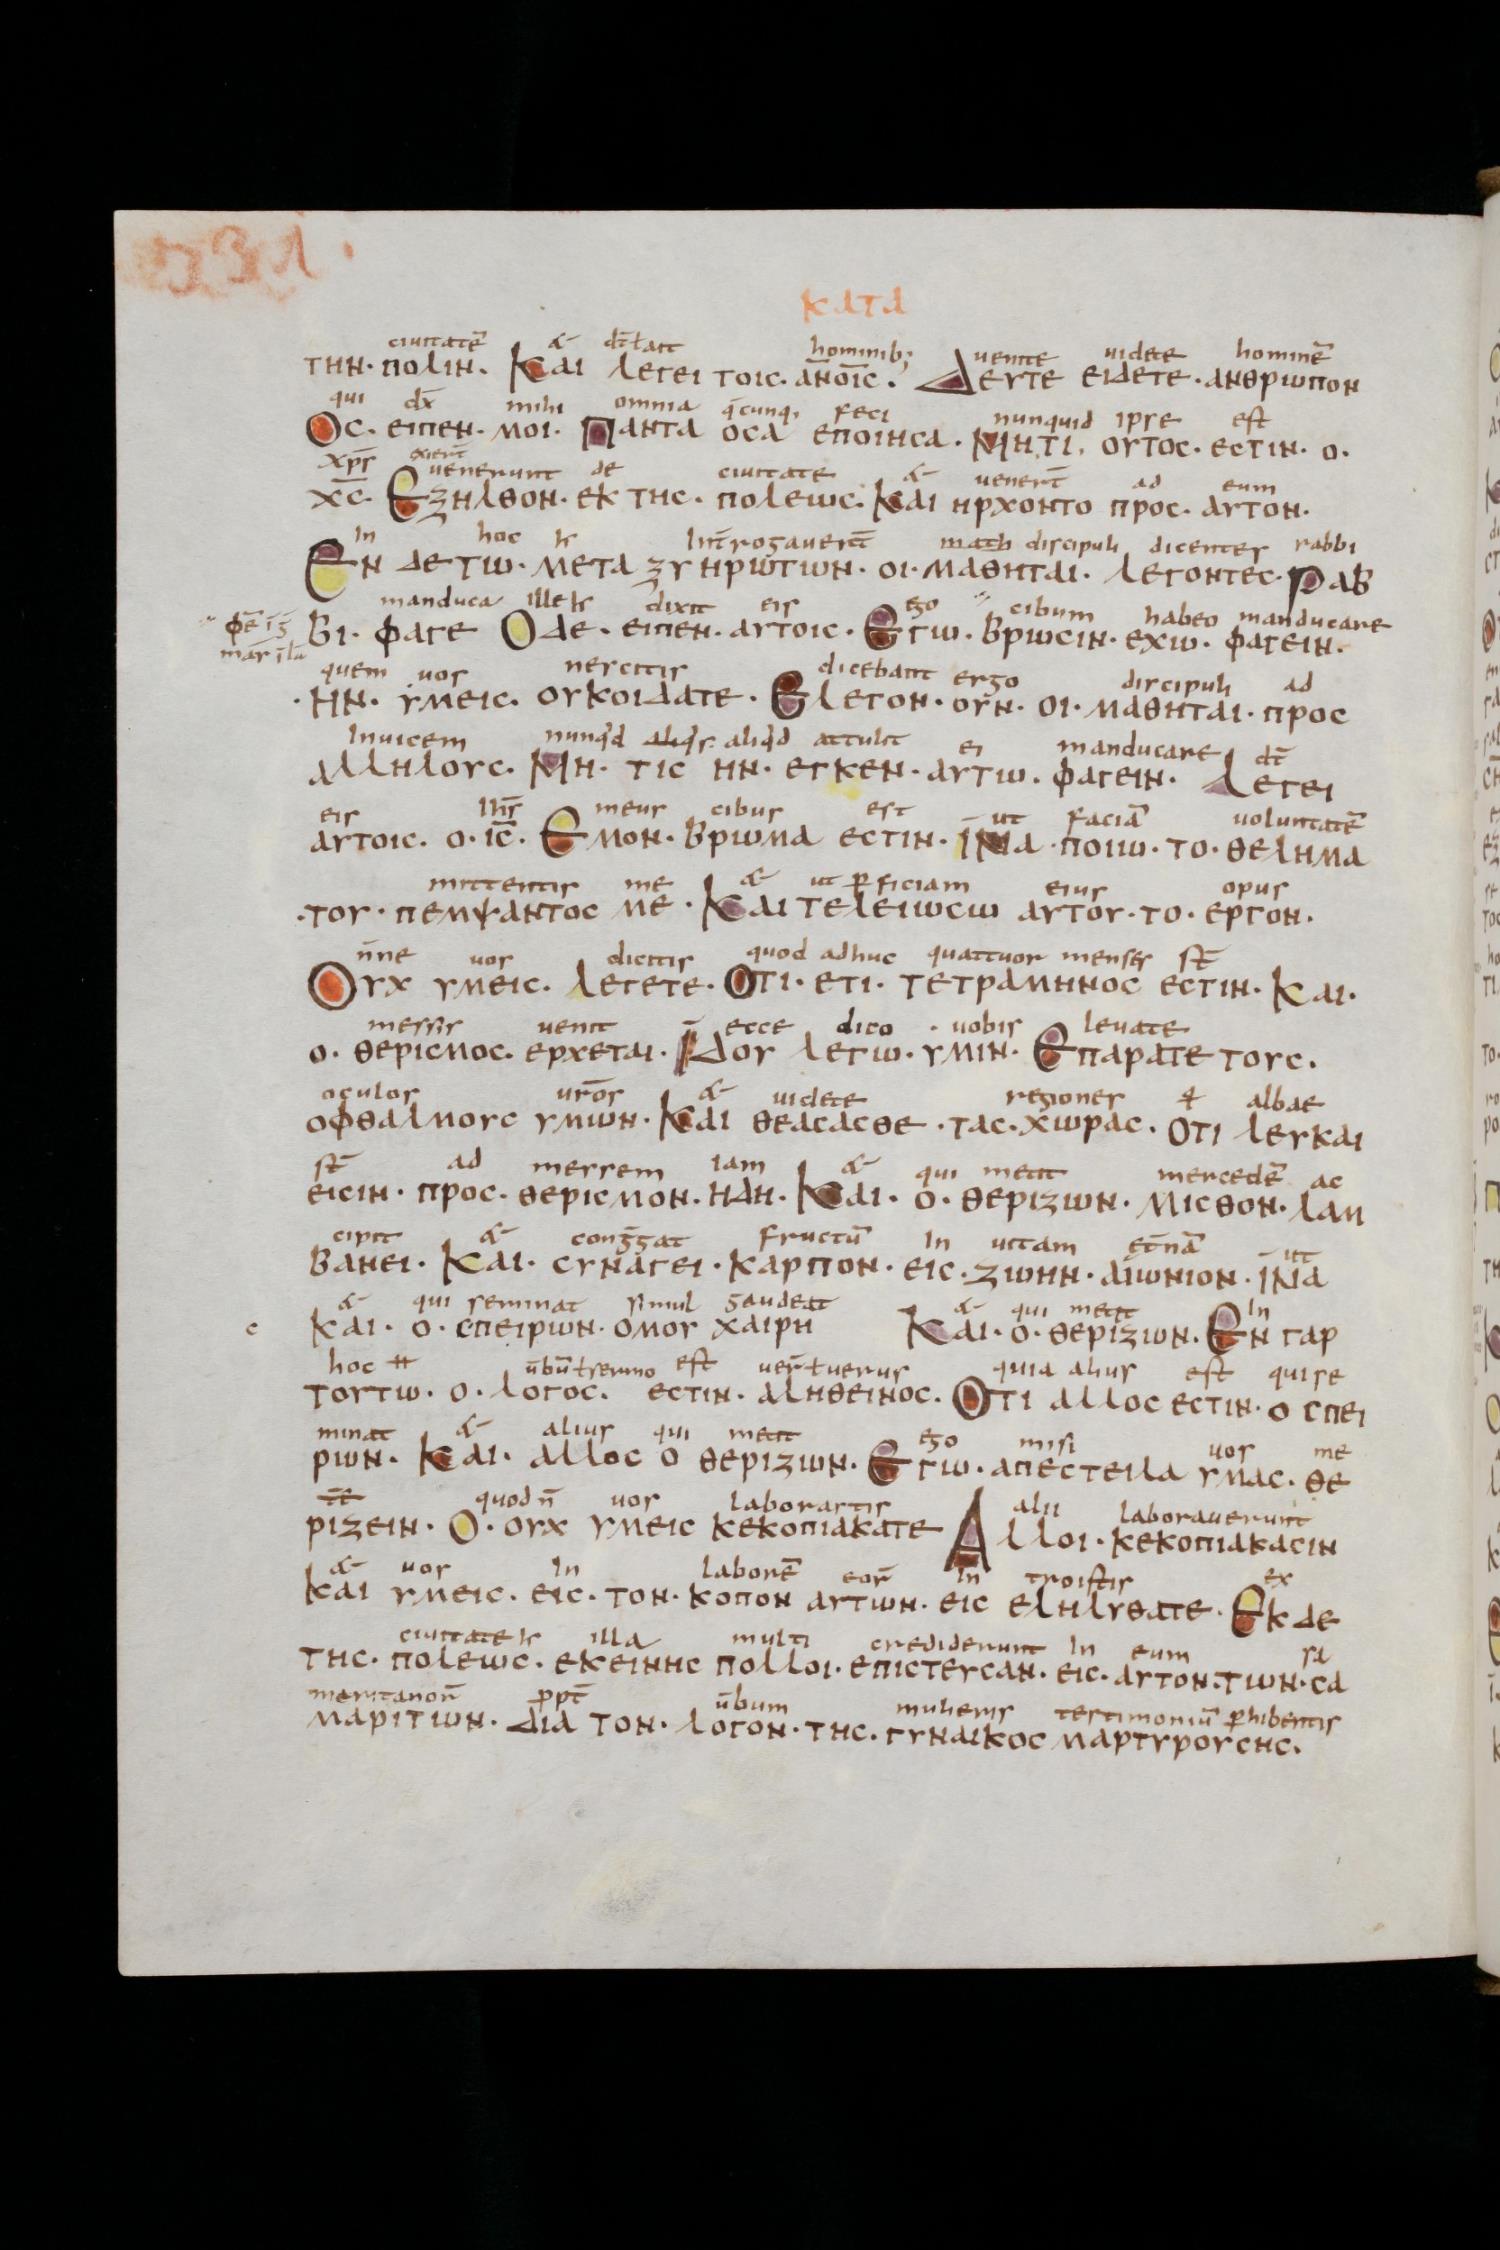 331
ΚΑΤΑ
ciuitatē & dt̄ ł ait hominib; uenite uidete hominē
ΤΗΝ· ΠΟΛΙΝ. ΚΑΙ ΛΕΓΕΙ ΤΟΙC· ΑΝ̄ΟῙC. ΔΕΥΤΕ ΕΙΔΕΤΕ· ΑΝΘΡΙΩΠΟΝ
qui dx̄ mihi omnia feci nunquid ipse est
ΟC. ΕΙΠΕΝ· ΜΟΙ· ΠΑΝΤΑ ΟCΑ ΕΠΟΙΗCΑ· ΜΗΤΙ, ΟΥΤΟC· ΕCΤΙΝ· Ο.
xp̄s exier̄t
uenerunt de ciuitate & uenert̄ ad eum
ΧC̄· ΕΞΗΛΘΟΝ· ΕΚ ΤΗC· ΠΟΛΕΩC· ΚΑΙ ΗΡΧΟΝΤΟ ΠΡΟC· ΑΥΤΟΝ·
In hoc Int̄rogauert̄ math discipuli dicentes rabbi
ΕΝ ΔΕ ΤΩ· ΜΕΤΑ ΞΥ ΗΡΩΤΩΝ· ΟΙ· ΜΑΘΗΤΑΙ· ΛΕΓΟΝΤΕC· ΡΑΒ
manduca ille dixit eis ego cibum habeo manducare
ΒΙ· ΦΑΓΕ Ο ΔΕ· ΕΙΠΕΝ· ΑΥΤΟΙC· ΕΓΩ· ΒΡΩCΙΝ· ΕΧΩ· ΦΑΓΕΙΝ·
quem uos nescitis dicebant ergo discipuli ad
·ΗΝ· ΥΜΕΙC· ΟΥΚΟΙΔΑΤΕ· ΕΛΕΓΟΝ· ΟΥΝ· ΟΙ· ΜΑΘΗΤΑΙ· ΠΡΟC
Inuicem nunq'd aliq's aliq'd attulit ei manducare dt̄
ΑΛΛΗΛΟΥC· ΜΗ· ΤΙC ΗΝ· ΕΓΚΕΝ· ΑΥΤΩ· ΦΑΓΕΙΝ· ΛΕΓΕΙ
eis Ih̄s meus cibus est ut faciā uoluntatē
ΑΥΤΟΙC· Ο· ΙC̄· ΕΜΟΝ· ΒΡΩΜΑ ΕCΤΙΝ· ΙΝΑ· ΠΟΙΩ· ΤΟ· ΘΕΛΗΜΑ
mittentis me & ut ꝑficiam eius opus
·ΤΟΥ· ΠΕΜΨΑΝΤΟC ΜΕ· ΚΑΙ ΤΕΛΕΙΩCΩ ΑΥΤΟΥ· ΤΟ· ΕΡΓΟΝ·
n̄ne uos dicitis quod adhuc quattuor menses st̄
ΟΥΧ ΥΜΕΙC· ΛΕΓΕΤΕ· ΟΤΙ· ΕΤΙ· ΤΕΤΡΑΜΗΝΟC ΕCΤΙΝ· ΚΑΙ·
messis uenit ecce dico · uobis leuate
Ο· ΘΕΡΙCΜΟC· ΕΡΧΕΤΑΙ· ΙΔΟΥ ΛΕΓΩ· ΥΜΙΝ· ΕΠΑΡΑΤΕ ΤΟΥC·
oculos ur̄os & uidete regiones albae
ΟΦΘΑΛΜΟΥC ΥΜΩΝ· ΚΑΙ ΘΕΑCΑCΘΕ· ΤΑC· ΧΩΡΑC· ΟΤΙ ΛΕΥΚΑΙ
st̄ ad messem iam & qui metit mercedē ac
ΕΙCΙΝ· ΠΡΟC· ΘΕΡΙCΜΟΝ· ΗΔΗ· ΚΑΙ· Ο· ΘΕΡΙΖΩΝ· ΜΙCΘΟΝ· ΛΑΜ
cipit & cong̅gat fructū In uitam et̄nā ut
ΒΑΝΕΙ· ΚΑΙ· CΥΝΑΓΕΙ· ΚΑΡΠΟΝ· ΕΙC· ΖΩΗΝ· ΑΙΩΝΙΟΝ· ΙΝΑ
& qui seminat simul gaudeat & qui metit In
c ΚΑΙ· Ο· CΠΕΙΡΩΝ· ΟΜΟΥ ΧΑΙΡΗ ΚΑΙ· Ο· ΘΕΡΙΖΩΝ· ΕΝ ΓΑΡ
hoc ūbū ł sermo est uer̄ ł uerus quia alius est qui se
ΤΟΥΤΩ· Ο· ΛΟΓΟC· ΕCΤΙΝ· ΑΛΗΘΕΙΝΟC· ΟΤΙ ΑΛΛΟC ΕCΤΙΝ· Ο CΠΕΙ
minat & alius qui metit ego misi uos me
ΡΩΝ· ΚΑΙ· ΑΛΛΟC Ο ΘΕΡΙΖΩΝ· ΕΓΩ· ΑΠΕCΤΕΙΛΑ ΥΜΑC· ΘΕ
quod n̄ uos laborastis alii laborauerunt
ΡΙΖΕΙΝ· Ο· ΟΥΧ ΥΜΕΙC ΚΕΚΟΠΙΑΚΑΤΕ ΑΛΛΟΙ· ΚΕΚΟΠΙΑΚΑCΙΝ
& uos In laborē eor̄ in troistis ex
ΚΑΙ ΥΜΕΙC· ΕΙC· ΤΟΝ· ΚΟΠΟΝ ΑΥΤΩΝ· ΕΙC ΕΛΗΛΥΘΑΤΕ· ΕΚ ΔΕ
ciuitate illa multi crediderunt In eum sa
ΤΗC· ΠΟΛΕΩC· ΕΚΕΙΝΗC ΠΟΛΛΟΙ· ΕΠΙCΤΕΥCΑΝ· ΕΙC· ΑΥΤΟΝ· ΤΩΝ· CΑ
meritanor̄ ꝓpt̄ ūbum mulieris testimoniū ꝑhibentis
ΜΑΡΙΤΩΝ· ΔΙΑ ΤΟΝ· ΛΟΓΟΝ· ΤΗC· ΓΥΝΑΙΚΟC ΜΑΡΤΥΡΟΥCΗC·